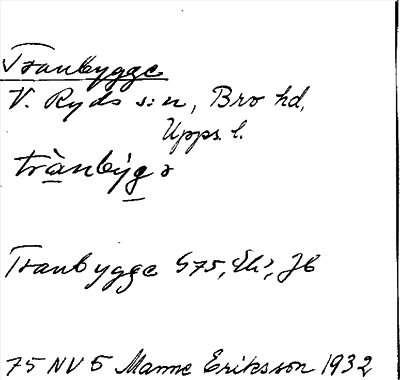 Tranbygge
V. Ryds s:n, Bro hd,
Upps. l.
trànbýgə
Tranbygge G75, Ek², JK
75 NV 5 Manne Eriksson 1932